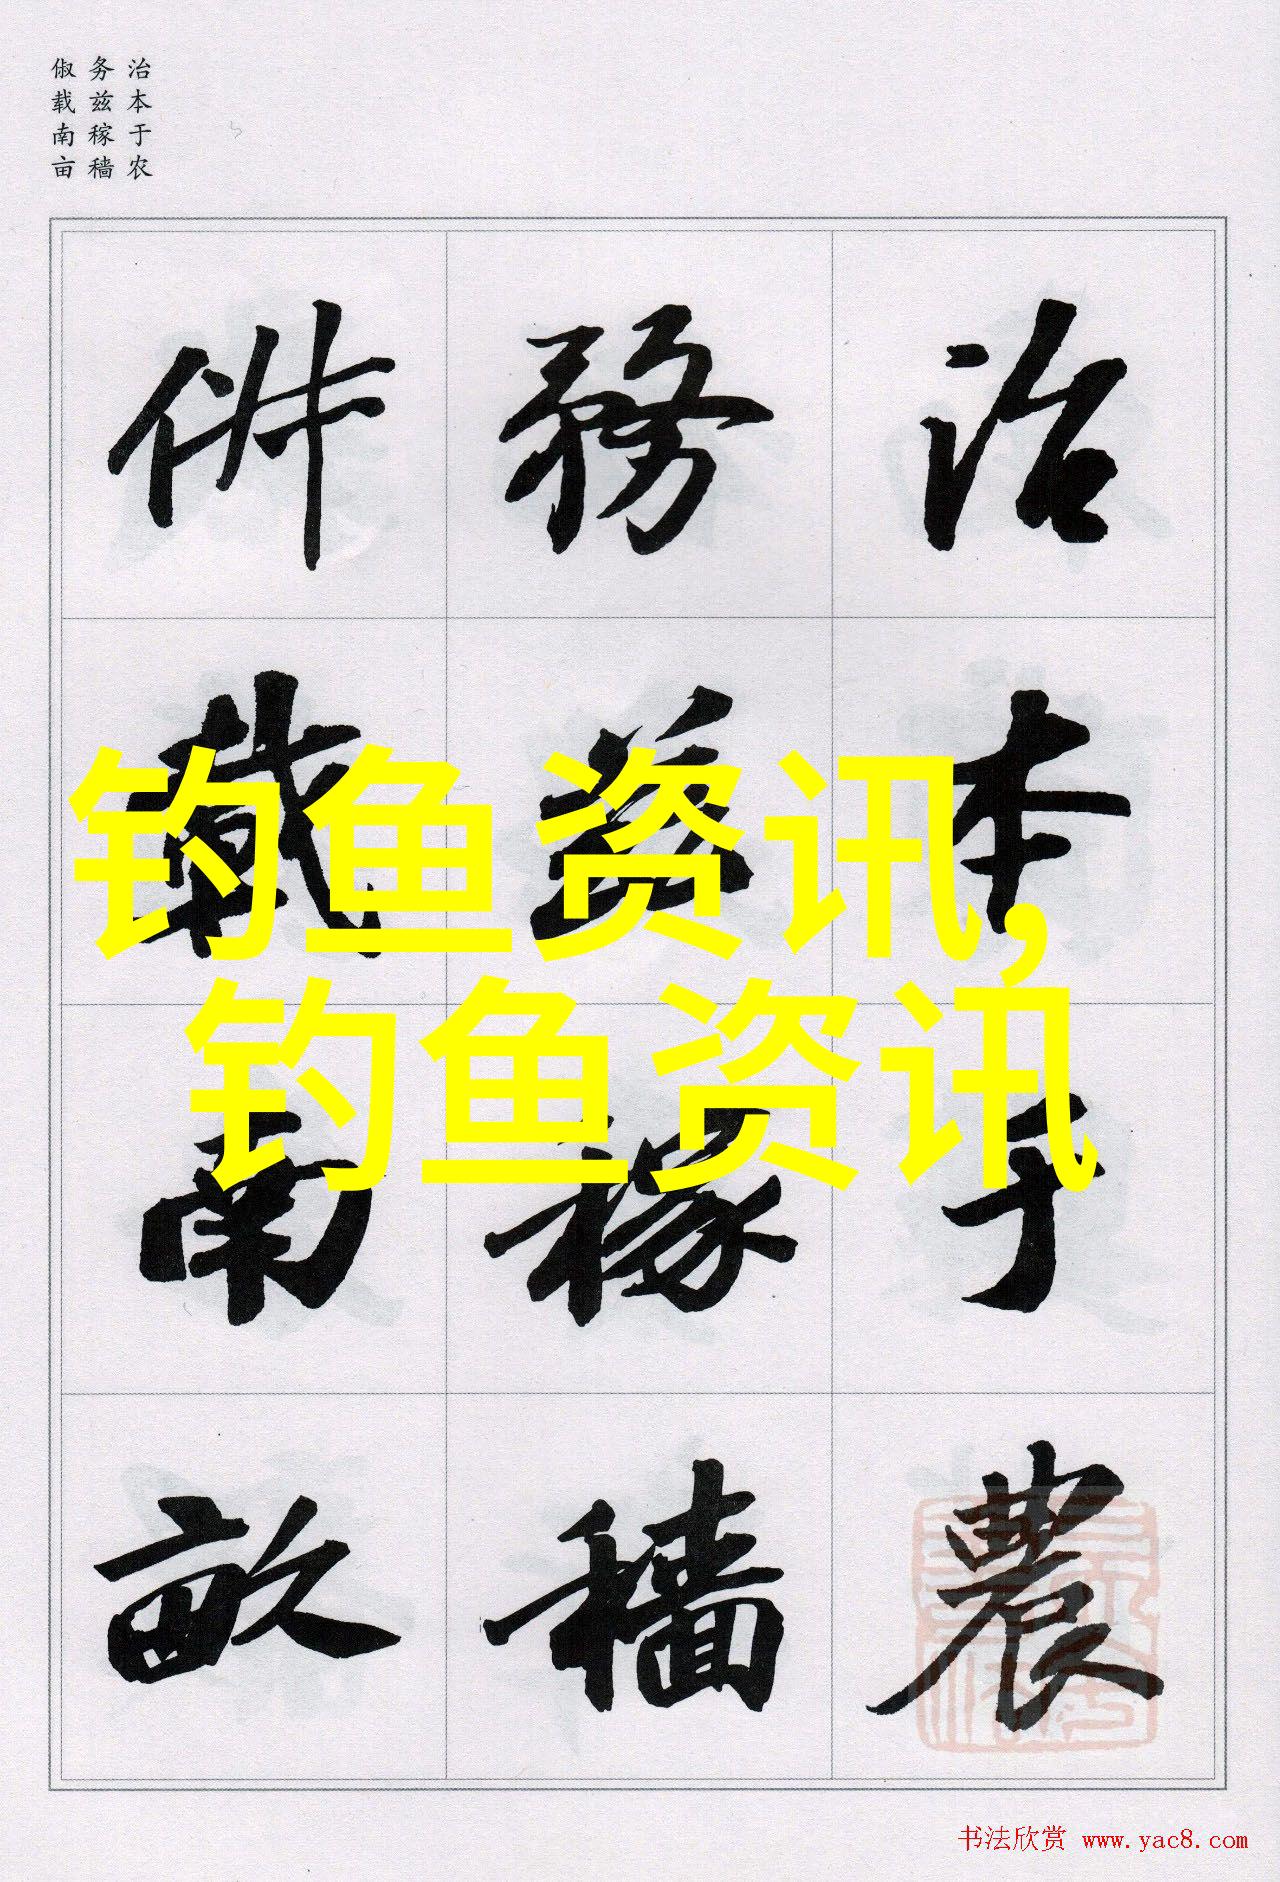 治本于农
务兹稼穑
俶载南亩
治本于農
務兹稼穡
俶載南畝
钓鱼资讯,
钓鱼资讯
书法欣赏 www.yac8.com